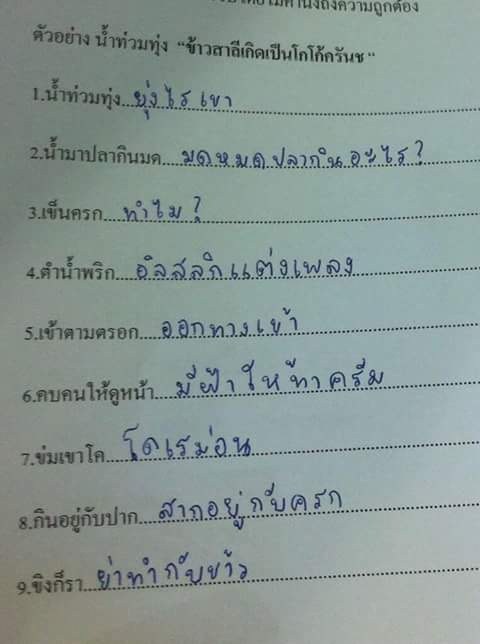 คำนึงถึงความถูกต้อง
ตัวอย่าง น้ำท่วมทุ่ง "ข้าวสาลีเกิดเป็นโกโก้ครันช"
1.น้ำท่วมทุ่ง...ยุ่งไรเขา
2.น้ำมาปลากินมด...มดหมดปลากินอะไร?
3.เข็นครก...ทำไม?
4.ตำน้ำพริก...อิสสลิกแต่งเพลง
5.เข้าตามตรอก...ออกทางเข้า
6.คบคนให้ดูหน้า...มีฝ้าให้ทาครีม
7.ข่มเขาโค...โดเรม่อน
8.กินอยู่กับปาก...สากอยู่กับครก
9.ขิงก็รา...ย่าทำกับข้าว